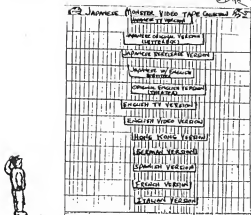 JAPANESE MONSTER VIDEO TAPE
JAPANESE TV VERSION
JAPANESE ORIGINAL VERSION
(LETTERBOX)
JAPANESE
JAPANESE W/ ENGLISH
SUBTITLES
ORIGINAL ENGLISH VERSION
(THEATER)
ENGLISH TV VERSION
ENGLISH VIDEO VERSION
HONG KONG VERSION
GERMAN VERSION
SPANISH VERSION
FRENCH VERSION
ITALIAN VERSION